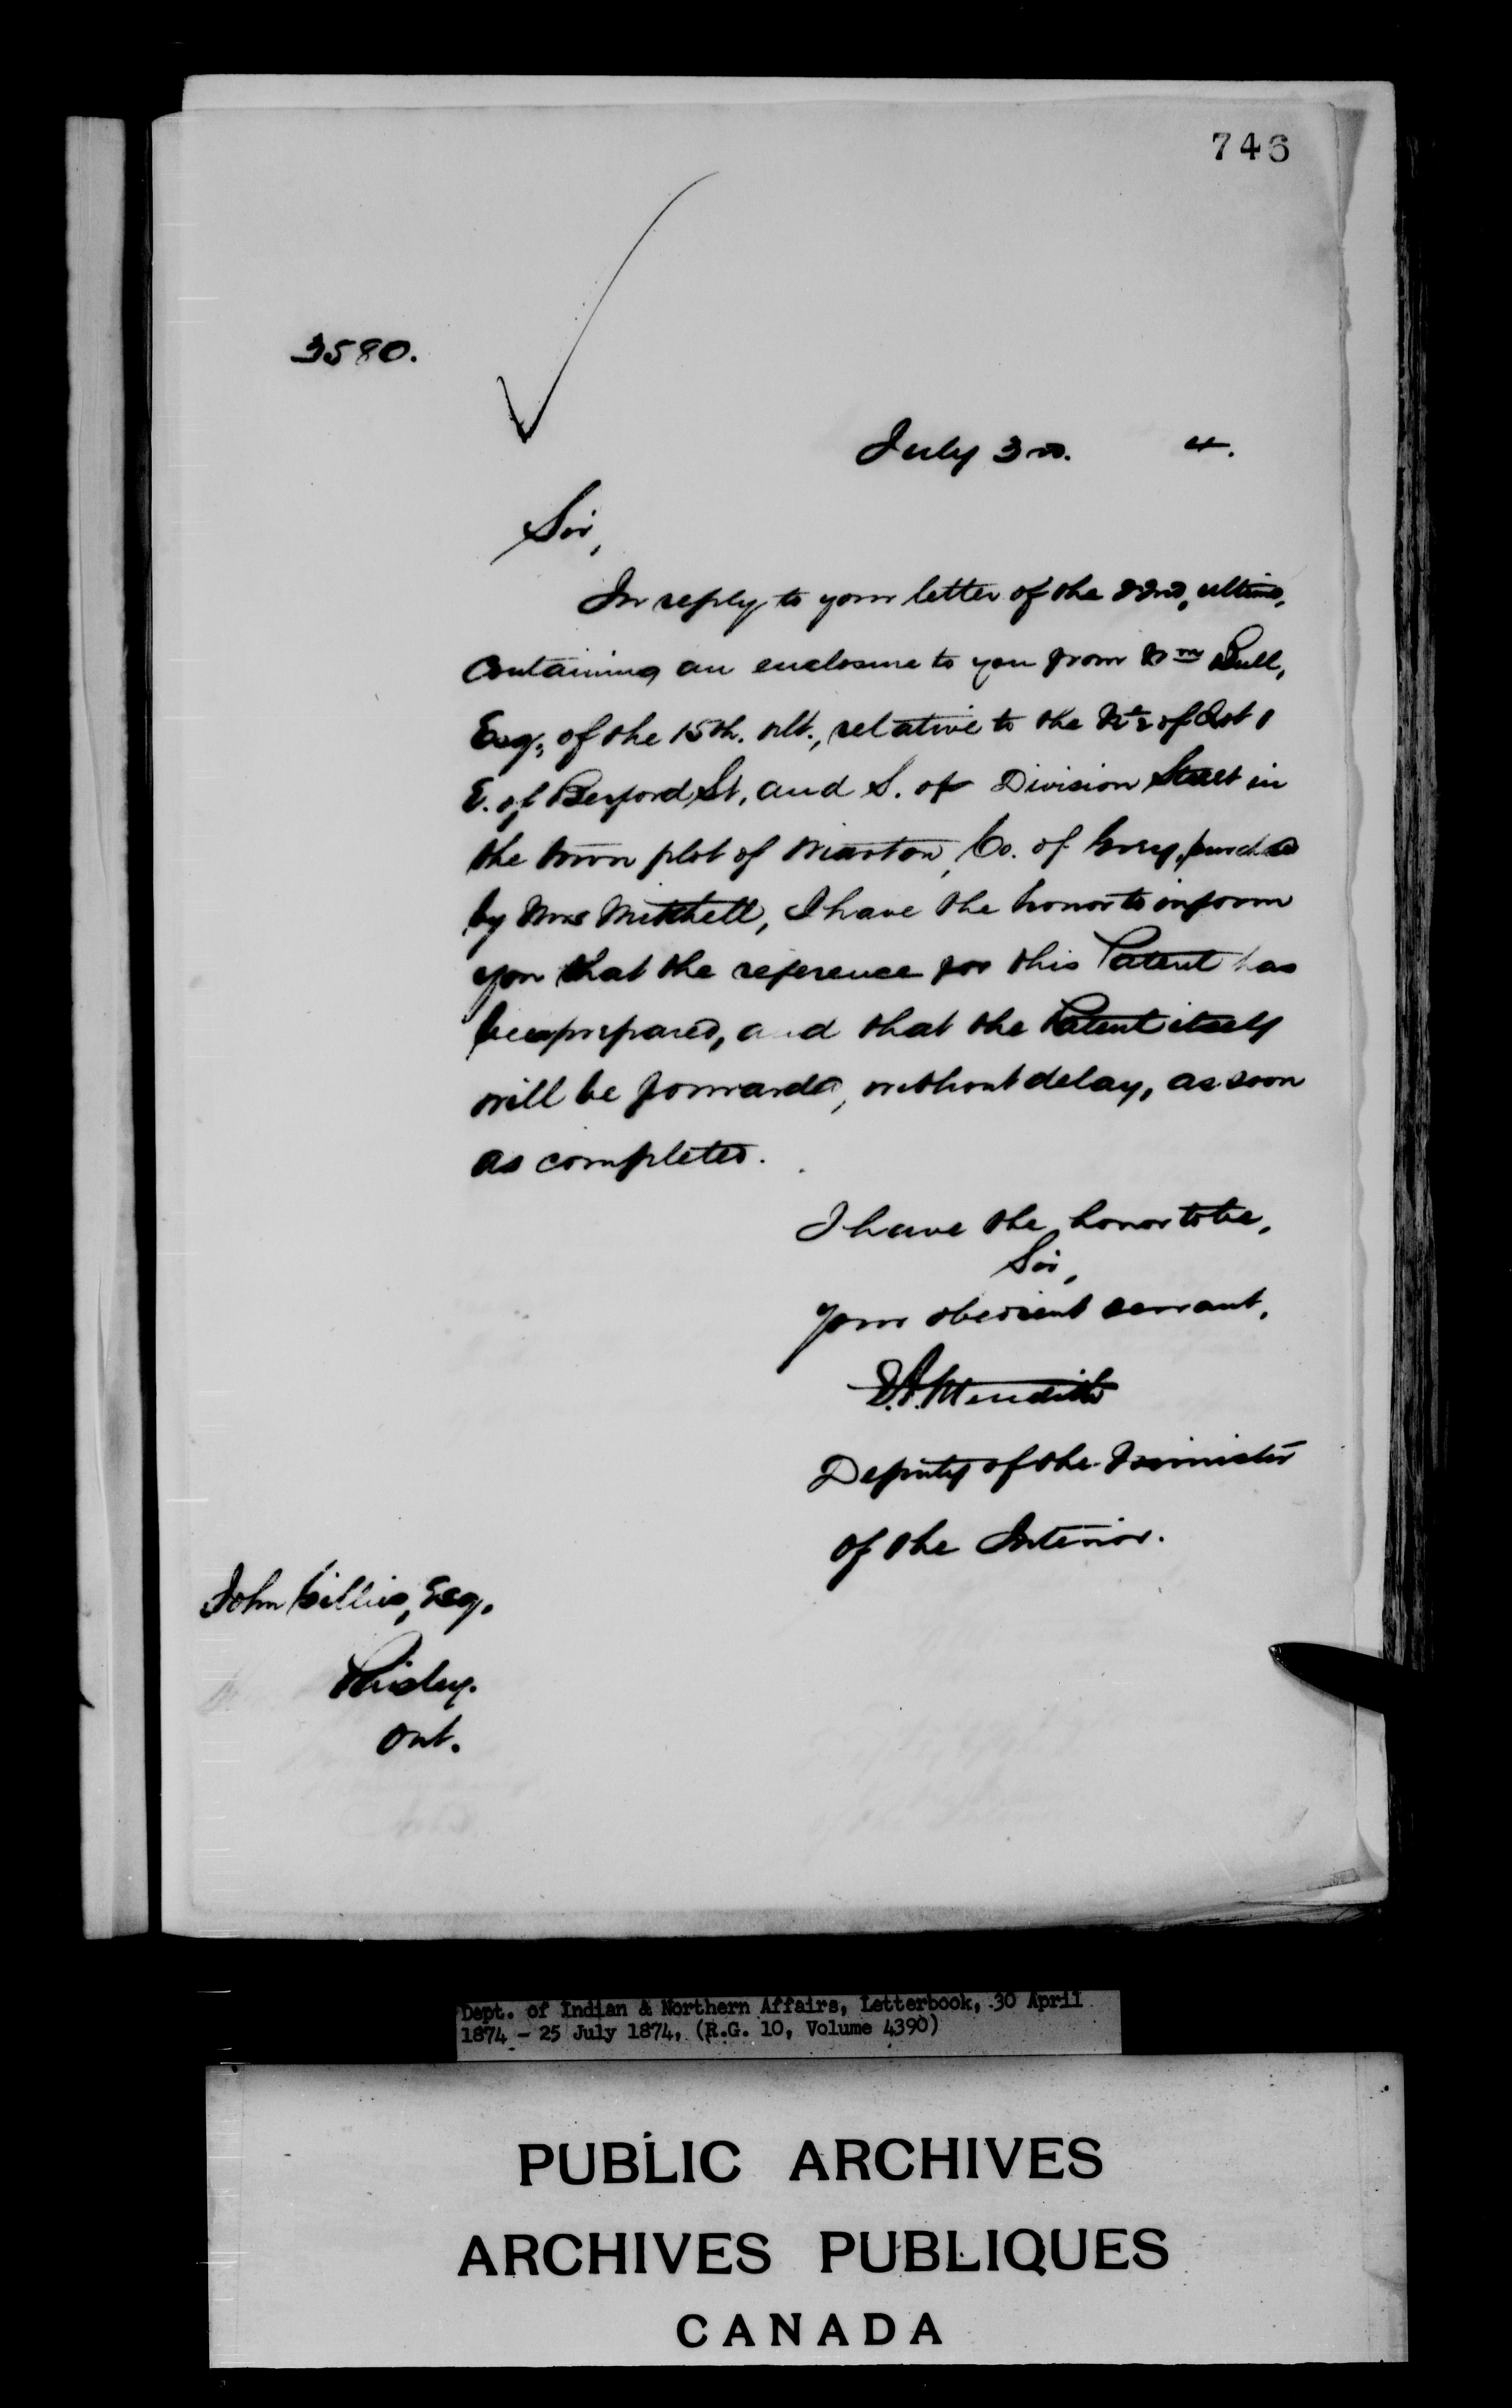 746
3580.
July 3rd. 4.
Sir,
In reply to your letter of the 22nd, ultimo,
containing an enclosure to you from Wm Bull,
Esq, of the 15th. ult., relative to the of Lot 1
E. of Berford St, and S. of Division Street in
the town plot of Wiarton, Co. of Grey, purch'd
by Mrs Mitchell, I have the honor to inform
you that the reference for this Patent has
been prepared, and that the Patent itself
will be forwarded, without delay, as soon
as completed.
I have the honor to be,
Sir,
your obedient servant,
E.A. Meredith
Deputy of the Minister
of the Interior.
John Gillies, Esq.
Paisley.
Ont.
Dept. of Indian & Northern Affairs, Letterbook, 30 April
1874 - 25 July 1874, (R.G. 10, Volume 4390)
PUBLIC ARCHIVES
ARCHIVES PUBLIQUES
CANADA